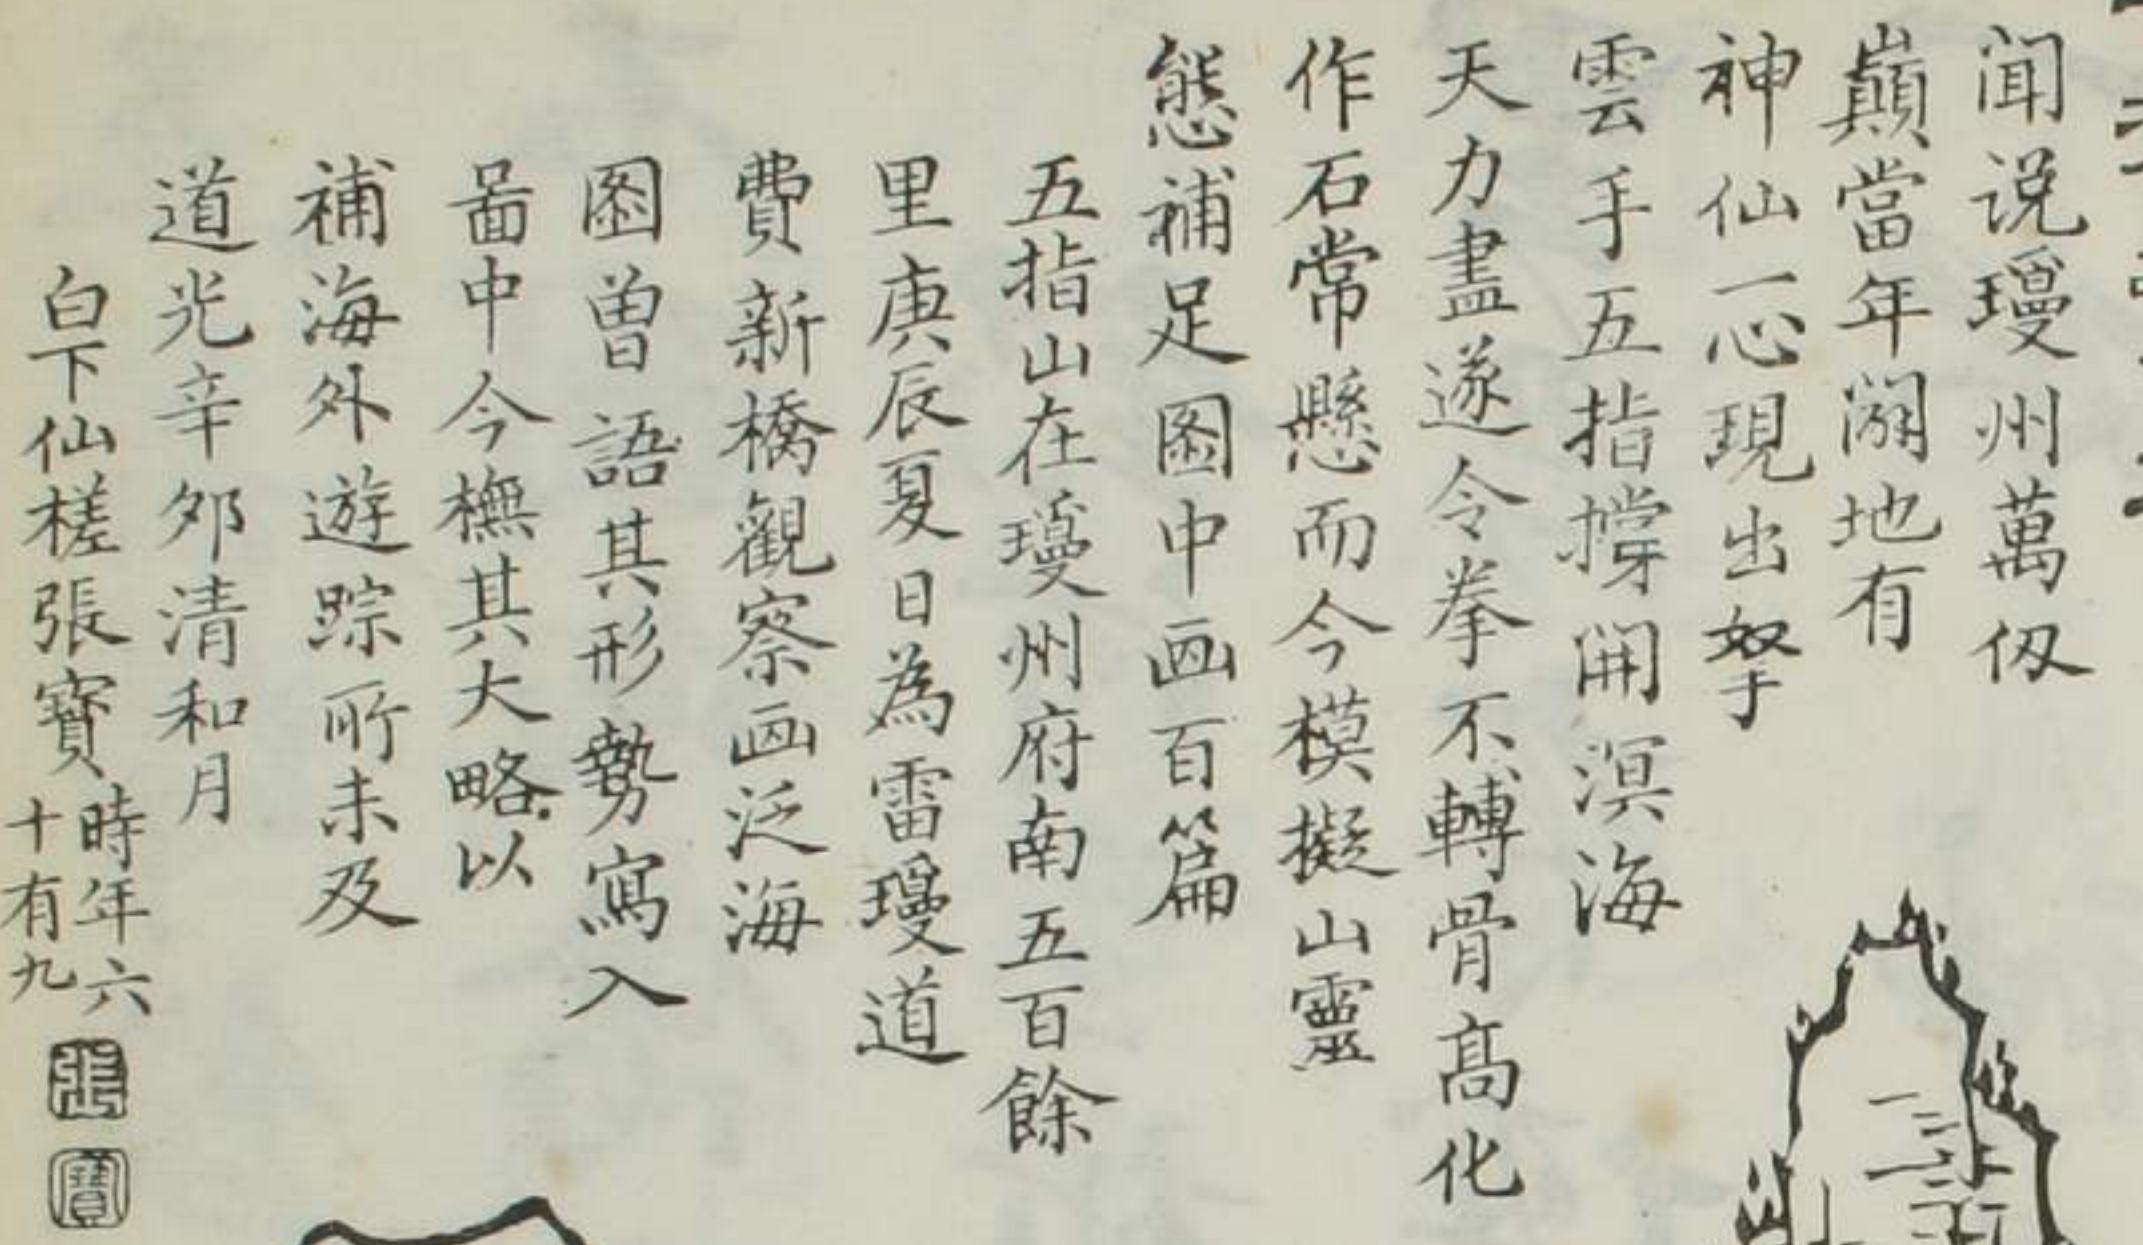 闻说瓊州萬仭
巔當年闢地有
神仙一心現出拏
雲手五指撐開溟海
天力盡遂令拳不轉骨高化
作石常懸而今模擬山靈
態補足圖中画百篇
五指山在瓊州府南五百餘
里庚辰夏日為雷瓊道
費新橋觀察画泛海
圖曾語其形勢寫入
啚中今橅其大略以
補海外遊踪所未及
道光辛夘清和月
白下仙槎張寶
時年六
十有九
張
寶